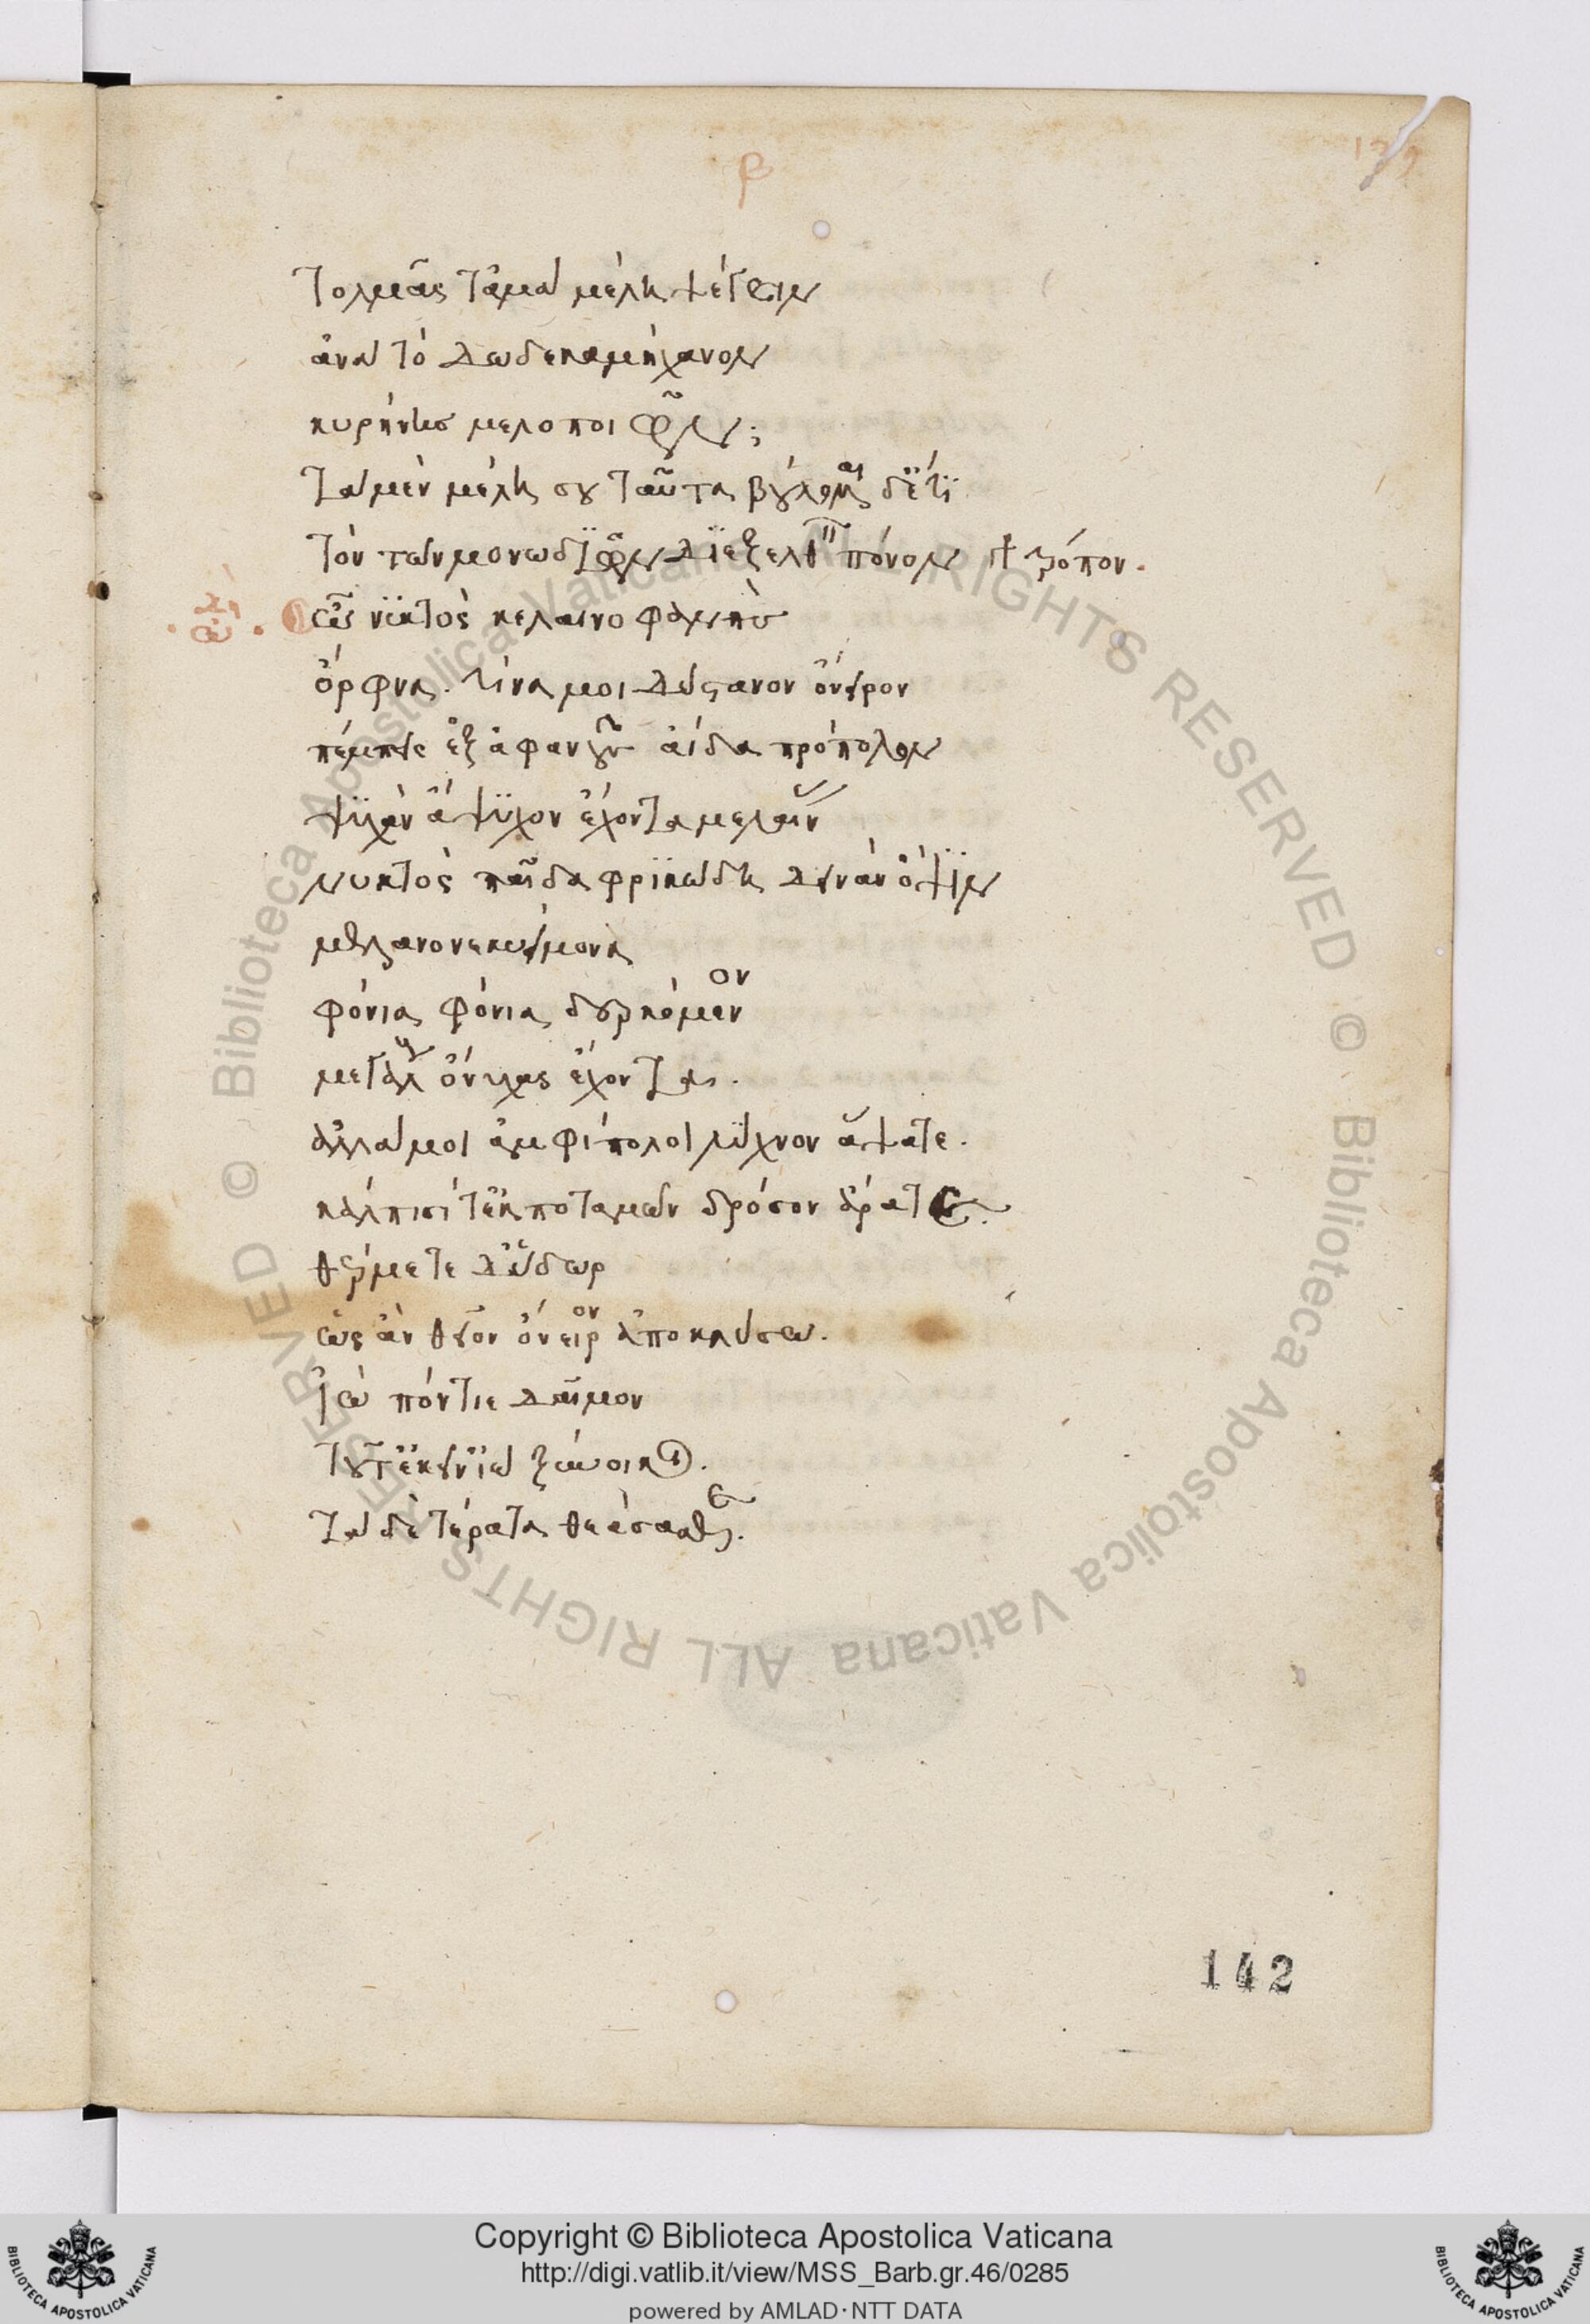 139
β
τολμᾶς τἀμὰ μέλη ψέγειν
ἀνὰ τὸ δωδεκαμήχανον
κυρήνης μελοποιῶν;
τὰ μὲν μέλη σου ταῦτα βούλομαι δ' ἔτι
τὸν τῶν μονωδιῶν διεξελθ πόνον τρόπον.
ὦ νυκτὸς κελαινοφαὴς
ὄρφνα. τίνα μοι δύστανον ὄνειρον
πέμπεις ἐξ ἀφανοῦς ἀίδα πρόπολον
ψυχὰν ἄψυχον ἔχοντα μελαίν
νυκτὸς παῖδα φρικώδη δεινὰν ὄψιν
μελανονεκυείμονα
φόνια φόνια δερκόμενον
μεγάλους ὄνυχας ἔχοντα.
ἀλλά μοι ἀμφίπολοι λύχνον ἅψατε.
κάλπισί τ' ἐκ ποταμῶν δρόσον ἄρατε.
θέρμετε δ' ὕδωρ
ὡς ἂν θεῖον ὄνειρον ἀποκλύσω.
ἰὼ πόντιε δαῖμον
τοῦτ' ἐκεῖν' ἰὼ ξύνοικοι.
τὰ δὲ τέρατα θεάσασθε.
142
© Biblioteca Apostolica Vaticana ALL RIGHTS RESERVED © Biblioteca Apostolica Vaticana ALL RIGHTS RESERVED
Copyright © Biblioteca Apostolica Vaticana
http://digi.vatlib.it/view/MSS_Barb.gr.46/0285
powered by AMLAD·NTT DATA
BIBLIOTECA APOSTOLICA VATICANA
BIBLIOTECA APOSTOLICA VATICANA